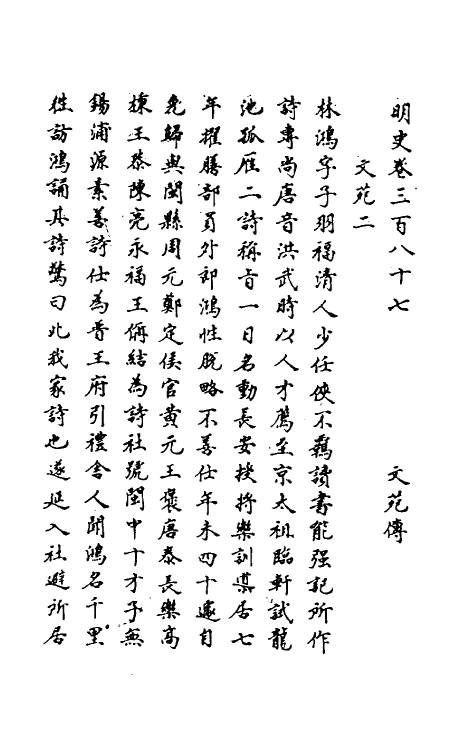 明史卷三百八十七 文苑傳
文苑二
林鴻字子羽福清人少任俠不羈讀書能强記所作
詩專尚唐音洪武時以人才薦至京太祖臨軒試龍
池孤雁二詩稱旨一日名動長安授將樂訓導居七
年擢膳部員外郎鴻性脫略不善仕年未四十遽自
免歸與閩縣周元鄭定侯官黃元王褒唐泰長樂高
棅王恭陳亮永福王偁結為詩社號閩中十才子無
錫浦源素善詩仕為晉王府引禮舍人聞鴻名千里
往訪鴻誦其詩驚曰此我家詩也遂延入社避所居